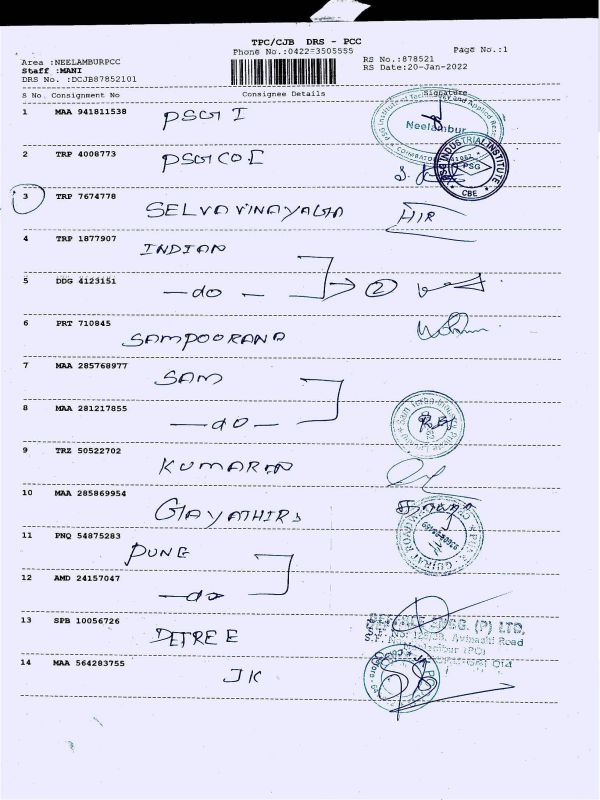 TPC/CJB DRS - PCC
Phone No.:0422=3505555
Page No.:1
Area :NEELAMBURPCC
Staff :MANI
DRS No. :DCJB87852101
RS No.:878521
RS Date:20-Jan-2022
S No. Consignment No Consignee Details Signature
1 MAA 941811538 PSG I
Neelambur
2 TRP 4008773 PSG COE
PSG INDUSTRIAL INSTITUTE
PSG
CBE
3 TRP 7674778 SELVAVINAYAGA
4 TRP 1877907 INDIAN
5 DDG 4123151 —do— 2
6 PRT 710845 SAMPOORANA
7 MAA 285768977 SAM
8 MAA 281217855 —do—
9 TRZ 50522702 KUMARAN
10 MAA 285869954 GAYATHIRI
11 PNQ 54875283 PUNG
12 AMD 24157047 —do—
13 SPB 10056726 DETREE
ENGG. (P) LTD,
Avinashi Road
14 MAA 564283755 JK